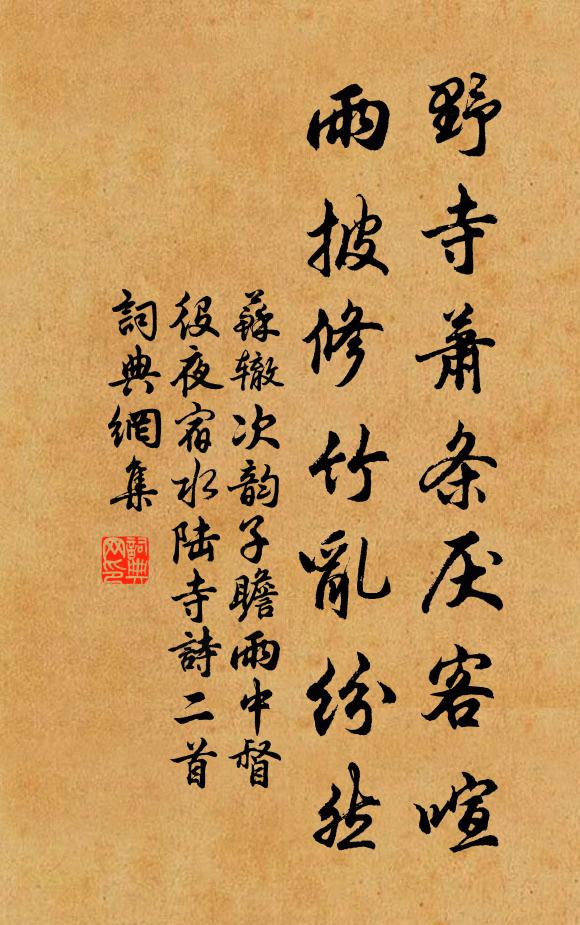 野寺蕭条厌客喧
雨披修竹亂纷然
蘇辙次韵子瞻雨中督
役夜宿水陆寺詩二首
詞典網集
詞典网印